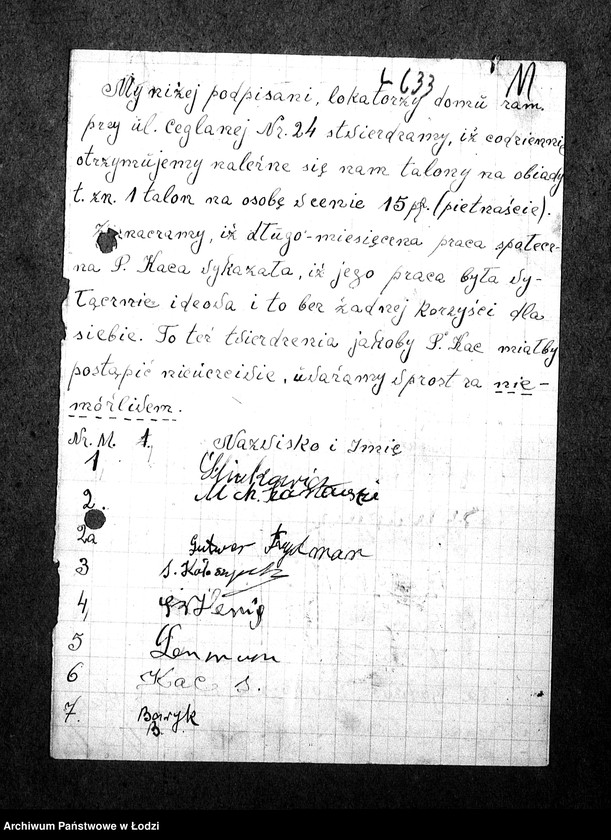 L 633 M
My niżej podpisani, lokatorzy domu zam.
przy ul. Ceglanej Nr. 24 stwierdzamy, iż codziennie
otrzymujemy należne się nam talony na obiady
t. zn. 1 talon na osobę w cenie 15 pf. (piętnaście).
Zaznaczamy, iż długo-miesięczna praca społecz-
na P. Kaca wykazała, iż jego praca była wy-
łącznie ideowa i to bez żadnej korzyści dla
siebie. To też twierdzenia jakoby P. Kac miałby
postąpić nieuczciwie, uważamy wprost za nie-
możliwem.
Nr. M. 1. Nazwisko i Imię
1
2.
2a Frydman
3 S.
4
5
6 Kac S.
7. Baryk
B.
Archiwum Państwowe w Łodzi